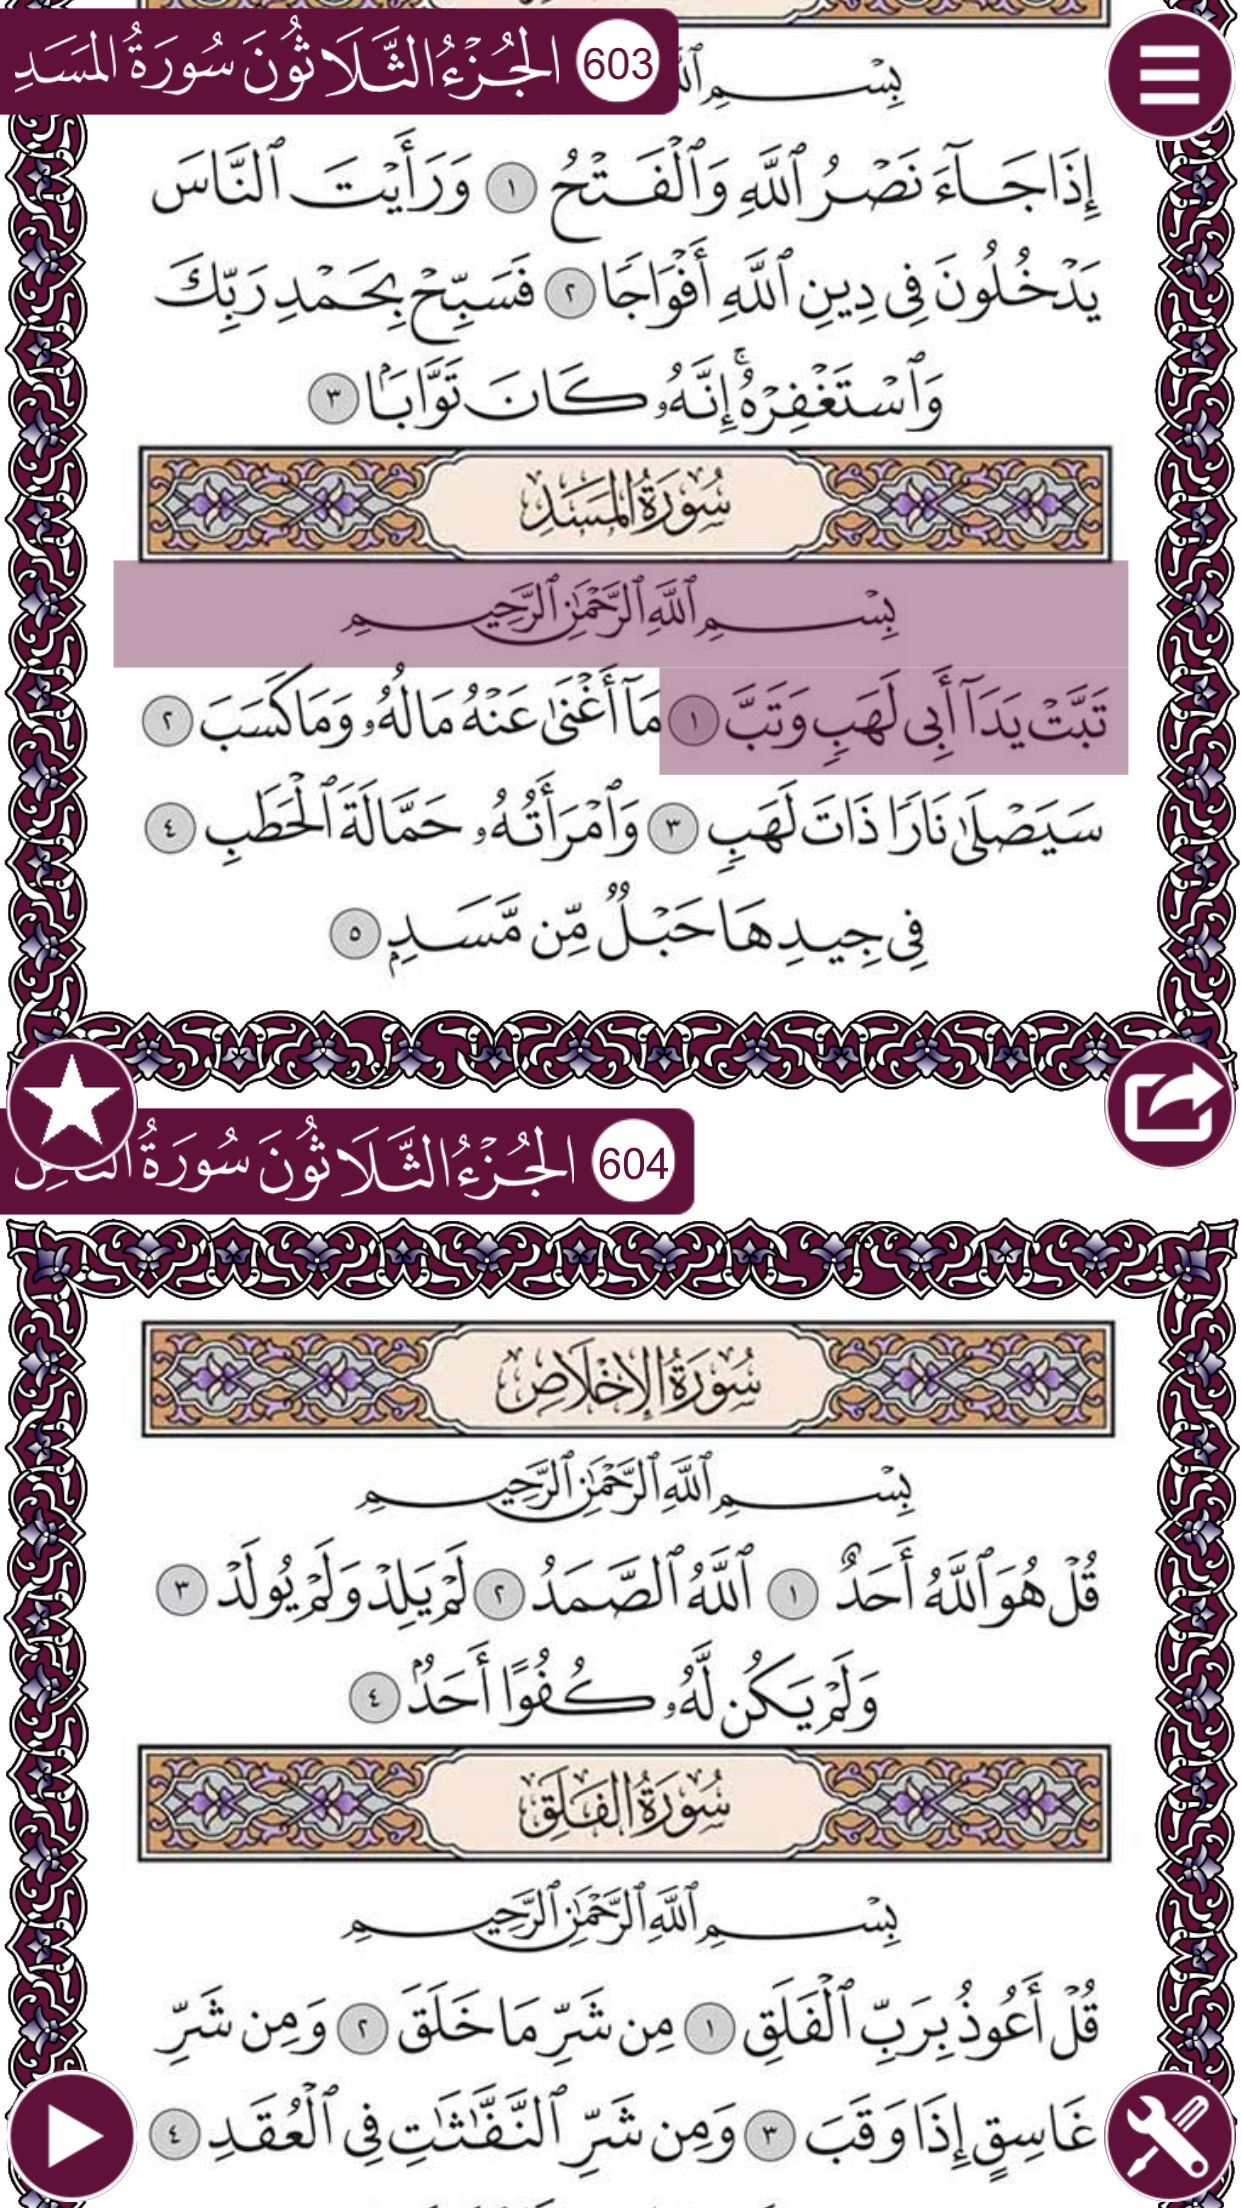 الجُزْءُ الثَّلَاثُونَ سُورَةُ المَسَدِ
603
بِسْمِ
إِذَا جَآءَ نَصْرُ ٱللَّهِ وَٱلْفَتْحُ ١ وَرَأَيْتَ ٱلنَّاسَ
يَدْخُلُونَ فِى دِينِ ٱللَّهِ أَفْوَاجًا ٢ فَسَبِّحْ بِحَمْدِ رَبِّكَ
وَٱسْتَغْفِرْهُ ۚ إِنَّهُۥ كَانَ تَوَّابًۢا ٣
سُورَةُ المَسَدِ
بِسْمِ ٱللَّهِ ٱلرَّحْمَٰنِ ٱلرَّحِيمِ
تَبَّتْ يَدَآ أَبِى لَهَبٍ وَتَبَّ ١ مَآ أَغْنَىٰ عَنْهُ مَالُهُۥ وَمَا كَسَبَ ٢
سَيَصْلَىٰ نَارًا ذَاتَ لَهَبٍ ٣ وَٱمْرَأَتُهُۥ حَمَّالَةَ ٱلْحَطَبِ ٤
فِى جِيدِهَا حَبْلٌ مِّن مَّسَدٍۭ ٥
الجُزْءُ الثَّلَاثُونَ سُورَةُ النَّاسِ
604
سُورَةُ الإِخْلَاصِ
بِسْمِ ٱللَّهِ ٱلرَّحْمَٰنِ ٱلرَّحِيمِ
قُلْ هُوَ ٱللَّهُ أَحَدٌ ١ ٱللَّهُ ٱلصَّمَدُ ٢ لَمْ يَلِدْ وَلَمْ يُولَدْ ٣
وَلَمْ يَكُن لَّهُۥ كُفُوًا أَحَدٌۢ ٤
سُورَةُ الفَلَقِ
بِسْمِ ٱللَّهِ ٱلرَّحْمَٰنِ ٱلرَّحِيمِ
قُلْ أَعُوذُ بِرَبِّ ٱلْفَلَقِ ١ مِن شَرِّ مَا خَلَقَ ٢ وَمِن شَرِّ
غَاسِقٍ إِذَا وَقَبَ ٣ وَمِن شَرِّ ٱلنَّفَّٰثَٰتِ فِى ٱلْعُقَدِ ٤